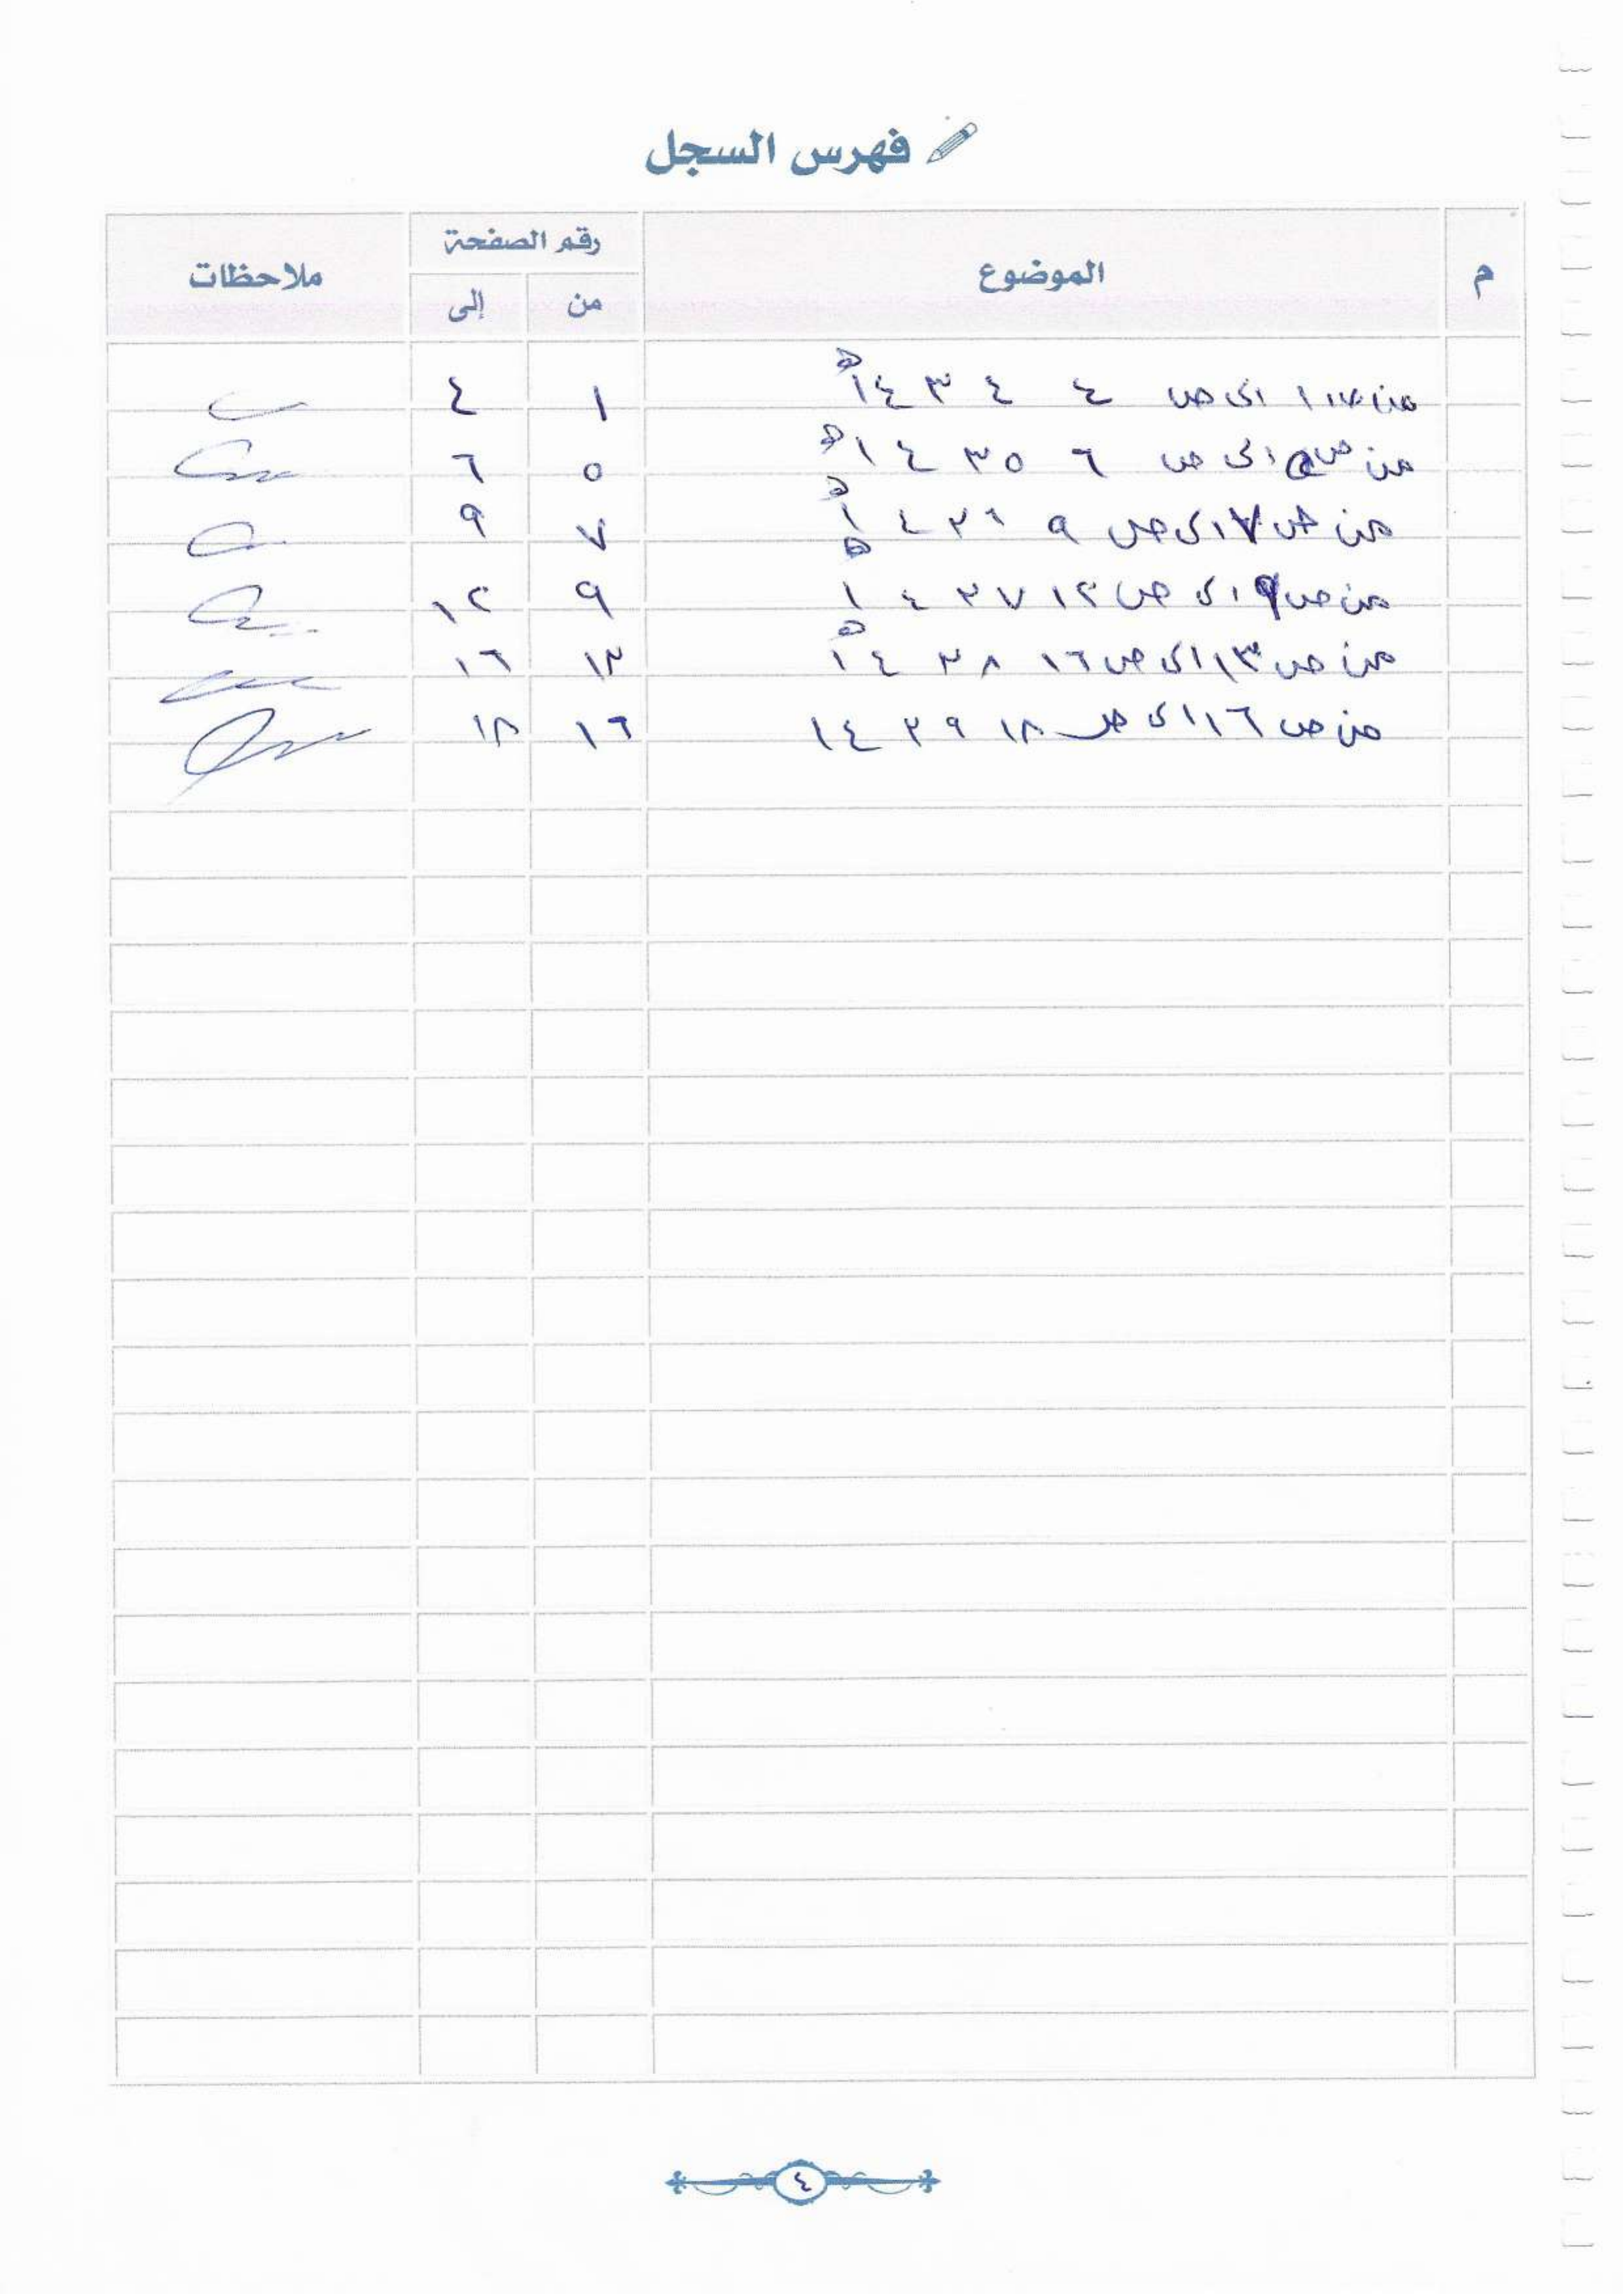 فهرس السجل
م الموضوع رقم الصفحة ملاحظات
من إلى
من ص ١ الى ص ٤ ١٤٣٤ ھ ١ ٤
من ص ٥ الى ص ٦ ١٤٣٥ ھ ٥ ٦
من ص ٧ الى ص ٩ ١٤٣٦ ھ ٧ ٩
من ص ٩ الى ص ١٢ ١٤٣٧ ھ ٩ ١٢
من ص ١٣ الى ص ١٦ ١٤٣٨ ھ ١٣ ١٦
من ص ١٦ الى ص ١٨ ١٤٣٩ ١٦ ١٨
٤